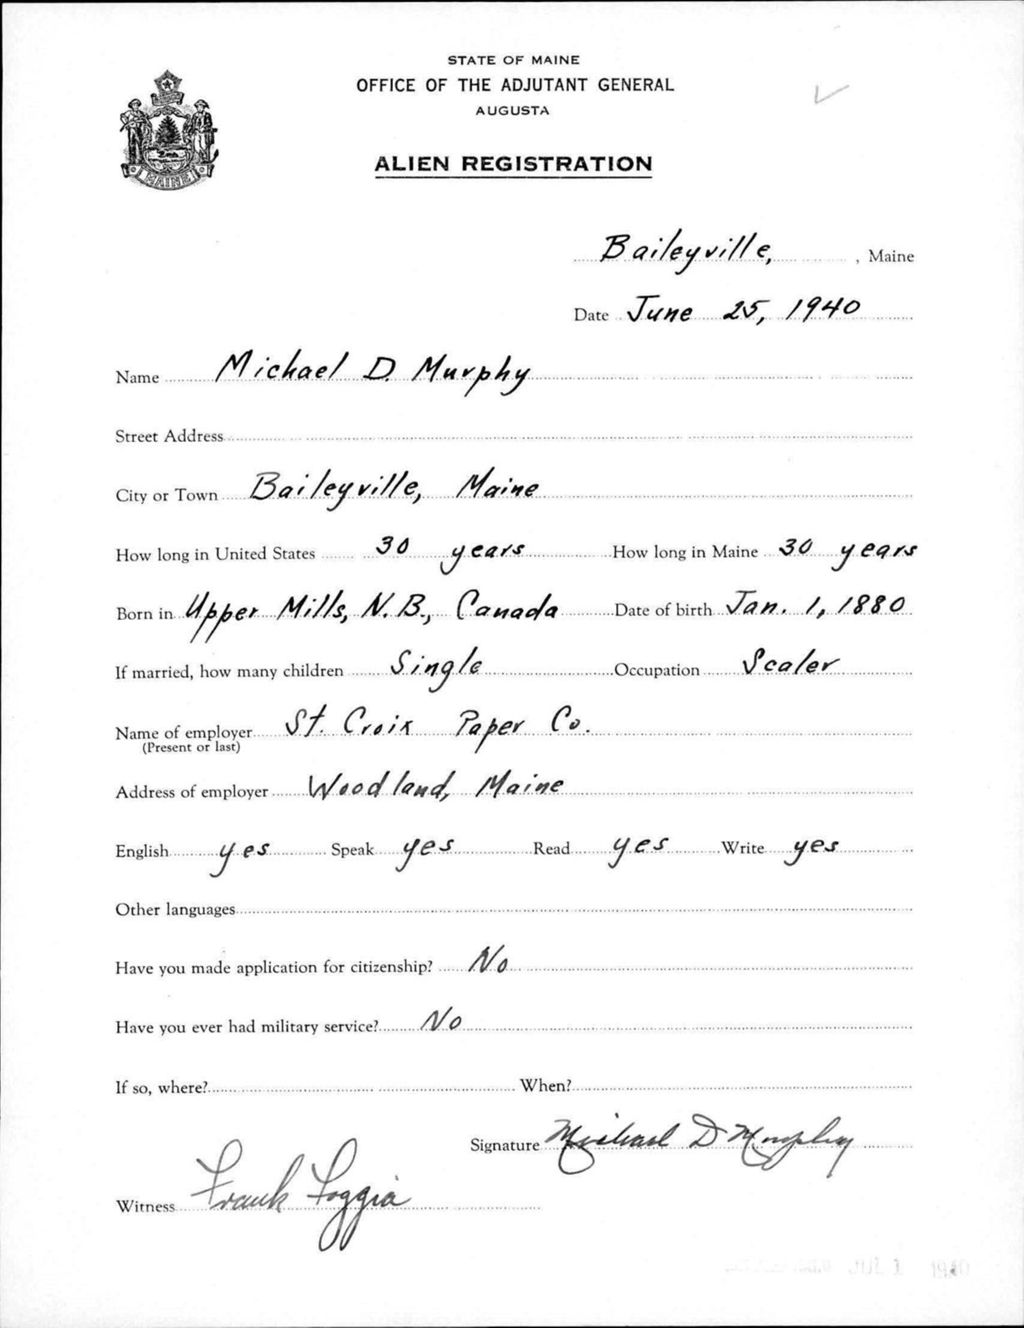 STATE OF MAINE
OFFICE OF THE ADJUTANT GENERAL
AUGUSTA
ALIEN REGISTRATION
MAINE
Baileyville, , Maine
Date June 25, 1940
Name Michael D. Murphy
Street Address
City or Town Baileyville, Maine
How long in United States 30 years How long in Maine 30 years
Born in Upper Mills, N.B., Canada Date of birth Jan. 1, 1880
If married, how many children Single Occupation Scaler
Name of employer St. Croix Paper Co.
(Present or last)
Address of employer Woodland, Maine
English yes Speak yes Read yes Write yes
Other languages
Have you made application for citizenship? No
Have you ever had military service? No
If so, where? When?
Signature Michael D Murphy
Witness Frank Foggia
JUL 1 1940